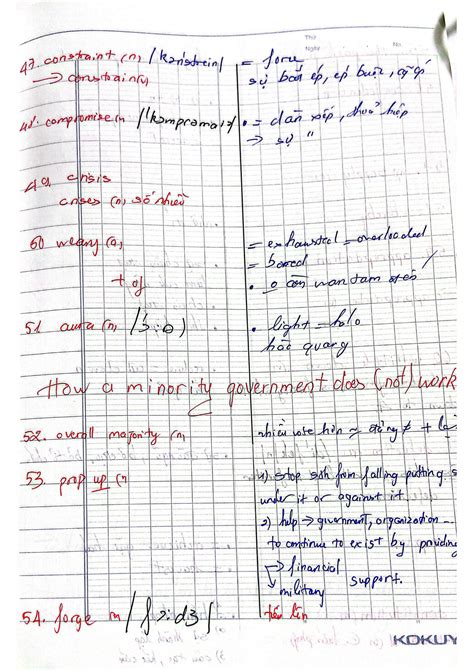 Thứ
Ngày No.
47. constraint (n) /kənstreint/ = force
→ constrain(v) sự bắt ép, ép buộc, cưỡng ép
48. compromise (n /'kɒmprəmaiz/ • = dàn xếp, thoả hiệp
→ sự "
49 crisis
crises (n, số nhiều
50 weary (a, = exhausted = overloaded
= bored
+ of • o còn
51 aura (n, • light = halo
hào quang
How a minority government does (not) work
52. overall majority (n nhiều vote hơn
53. prop up (n 1) stop sth from falling putting s
under it or against it.
2) help → government, organization
to continue to exist by providing
→ financial
military support.
54. forge tiến lên
KOKUY